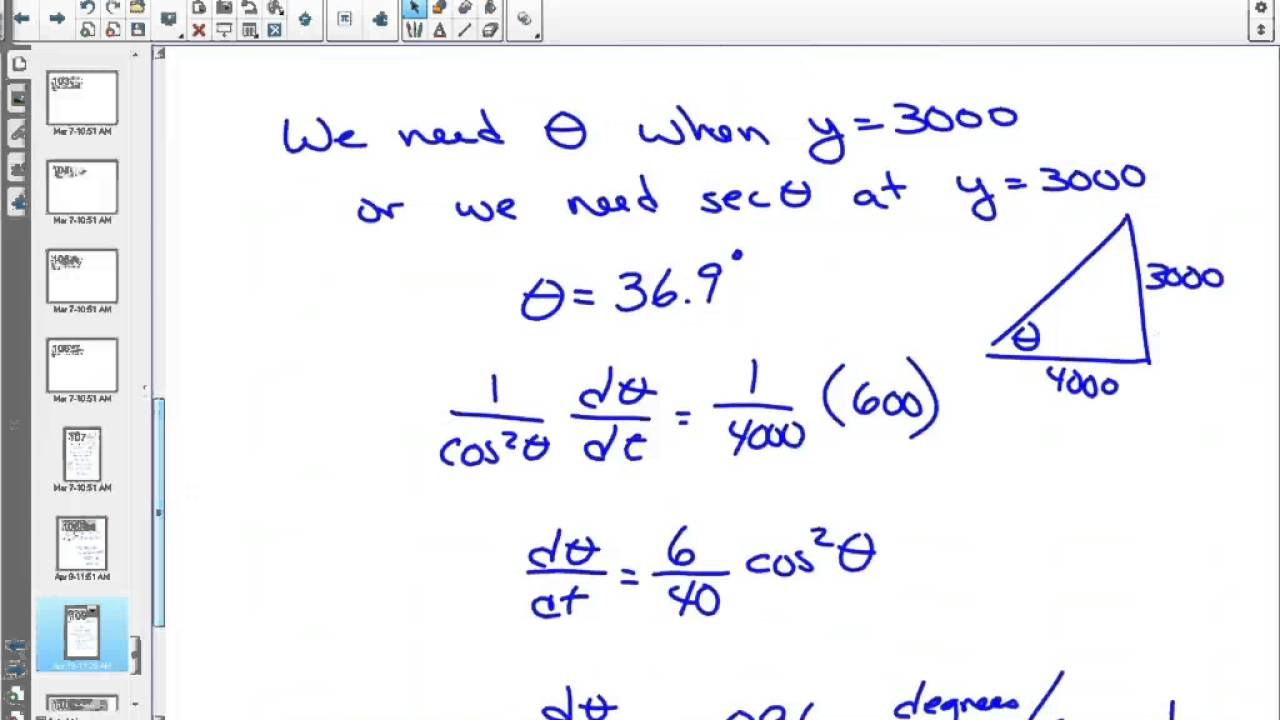 We need θ when y = 3000
or we need sec θ at y = 3000
θ = 36.9°
3000
θ
4000
1/cos²θ dθ/dt = 1/4000 (600)
dθ/dt = 6/40 cos²θ
dθ degrees/
Mar 7-10:51 AM
Mar 7-10:51 AM
Mar 7-10:51 AM
Mar 7-10:51 AM
107
Mar 7-10:51 AM
Apr 9-11:51 AM
109